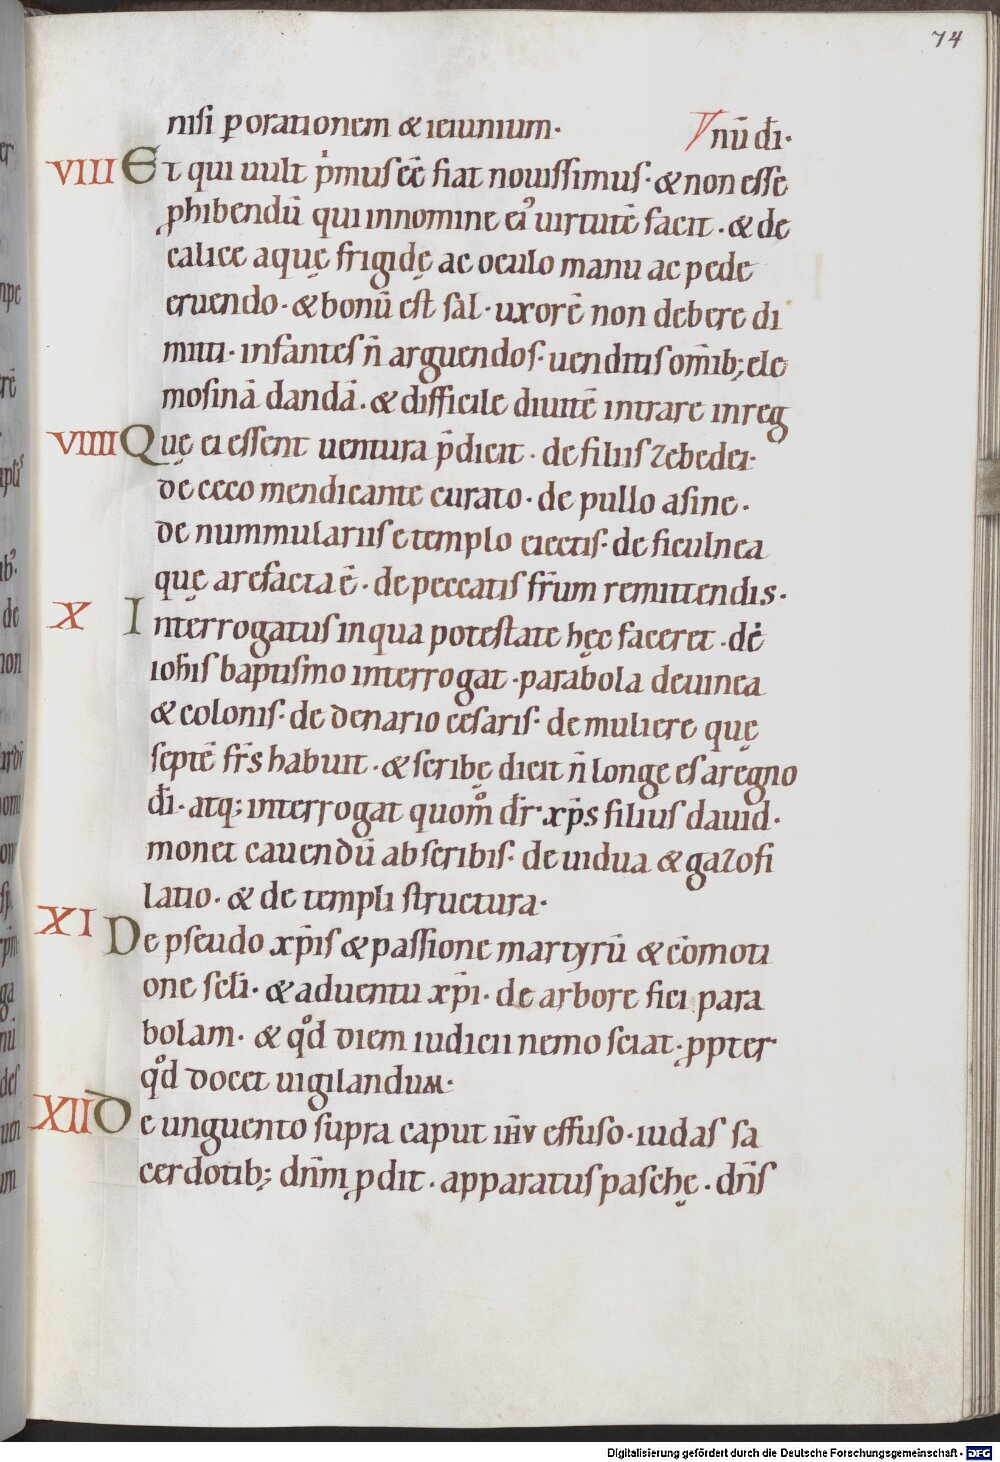 74
nisi ꝑ orationem & ieiunium·
nū dī·
VIII Et qui uult p̓mus eē̄ fiat nouissimus· & non esse
ꝓhibendū qui innomine ei᾽ uirtutē facit· & de
calice aquę frigidę ac oculo manu ac pede
eruendo· & bonū est sal· uxorē non debere di
mitti· infantes n̄ arguendos· uenditis om̄ib; ele
mosinā dandā· & difficile diuitē intrare inreg
VIIII Quę ei essent uentura p̄dicit· de filiis zebedei·
de ceco mendicante curato· de pullo asine·
de nummulariis e templo eiectis· de ficulnea
quę arefacta ē· de peccatis fr̄um remittendis·
X Interrogatus inqua potestate hęc faceret· dē
ioh̄is baptismo interrogat· parabola deuinea
& colonis· de denario cesaris· de muliere quę
septē fr̄s habuit· & scribę dicit n̄ longe es aregno
dī· atq; interrogat quom̊ dr̄ xp̄s filius dauid·
monet cauendū ab scribis· de uidua & gazofi
latio· & de templi structura·
XI De pseudo xp̄is & passione martyrū & cōmoti
one sclī· & aduentu xp̄i· de arbore fici para
bolam· & qd̊ diem iudicii nemo sciat· ꝓpter
qd̊ docet uigilandum·
XII De unguento supra caput ih̄v effuso· iudas sa
cerdotib; dn̄m ꝓdit· apparatus paschę· dn̄s
Digitalisierung gefördert durch die Deutsche Forschungsgemeinschaft - DFG